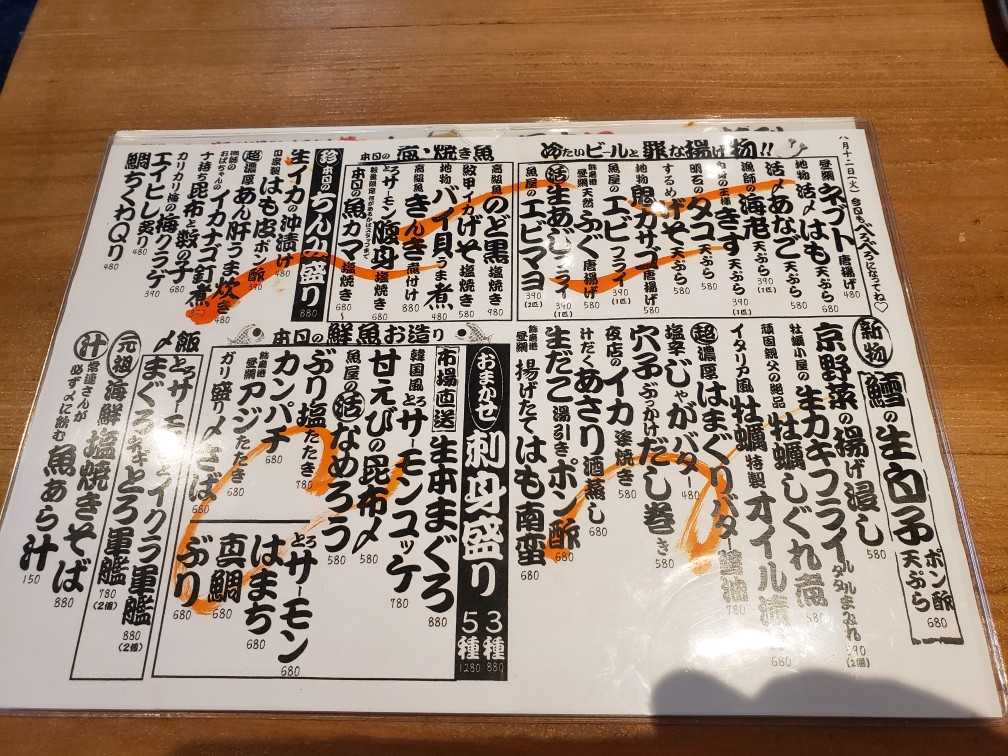 八月十二日(火) 今日もべろべろになってね♡
冷たいビールと罪な揚げ物!!
昼網 ネブト 唐揚げ 480
地物 活〆はも 天ぷら 680
活〆あなご 天ぷら 580
漁師の海老 天ぷら 390(1匹)
きす 天ぷら 390(1匹)
明石のタコ 天ぷら 580
するめげそ 天ぷら 580
地物 鬼カサゴ 唐揚げ 580
魚屋のエビフライ 390(1匹)
昼網天然 ふぐ 唐揚げ 580
活 生あじフライ 390(1匹)
魚屋のエビマヨ 390(2匹)
本日の煮・焼き魚
高級魚 のど黒 塩焼き 980
紋甲イカげそ 塩焼き 580
地物 バイ貝 うま煮 480
高級魚 きんき 煮付け 980
とろサーモン 腹身 塩焼き 680
本日の魚カマ 塩焼き 680〜
珍 本日のちんみ盛り 880
生イカの沖漬け 480
自家製 はも皮 ポン酢 390
超濃厚 あん肝うま炊き 480
漁師のおばちゃんの イカナゴ釘煮
子持ち昆布と数の子 680
カリカリ梅の梅クラゲ 390
エイヒレ炙り 480
鯛ちくわQり 480
新物 鱈の生白子 ポン酢 天ぷら 680
京野菜の揚げ浸し 580
牡蠣小屋の生カキフライ タルタルまみれ 390(2個)
頑固親父の絶品 牡蠣しぐれ煮 580
イタリア風 牡蠣 特製オイル漬 680
超濃厚 はまぐりバター醤油 780
塩辛じゃがバター 480
穴子ぶっかけだし巻き 580
夜店のイカ 姿焼き 580
汁だくあさり酒蒸し 680
生だこ湯引きポン酢 680
昼網 揚げたてはも南蛮 680
本日の鮮魚お造り
おまかせ 刺身盛り 3種 880 5種 1280
市場直送 生本まぐろ 880
韓国風 とろサーモンユッケ 780
甘えびの昆布〆 580
魚屋の活なめろう 580
ぶり塩たたき 780
カンパチ 680
昼網 アジたたき 680
ガリ盛り〆さば 680
とろサーモン 680
はまち 680
真鯛 680
ぶり 680
〆飯
とろサーモンとイクラ軍艦 880(2個)
まぐろネギとろ軍艦 780(2個)
元祖 海鮮塩焼きそば 880
汁 常連さんが必ず〆に飲む 魚あら汁 150